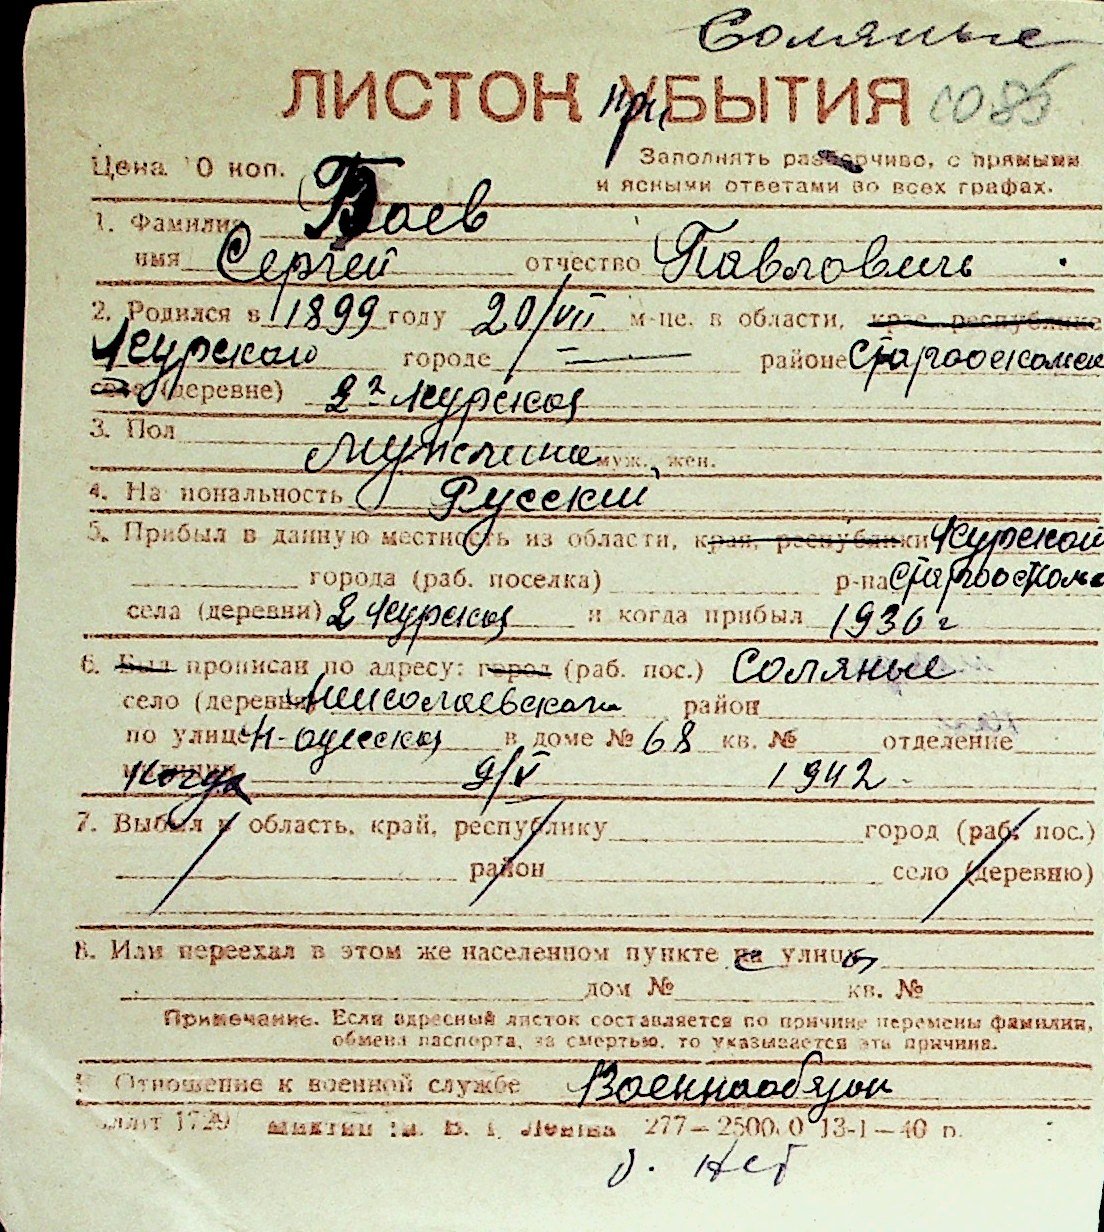 Соляные
ЛИСТОК при УБЫТИЯ
Цена 10 коп. Заполнять разборчиво, с прямыми
и ясными ответами во всех графах.
1. Фамилия Баев
имя Сергей отчество Павловичь
2. Родился в 1899 году 20/VII м-це. в области, крае, республике
Курского городе — районе Старооскольск
села (деревне) 2ª Курская
3. Пол Мужчина муж., жен.
4. Национальность Русский
5. Прибыл в данную местность из области, края, республики Курской
города (раб. поселка) р-на Староосколь
села (деревни) 2 Курская и когда прибыл 1930 г
6. Был прописан по адресу: город (раб. пос.) Соляные
село (деревня) Николаевского район
по улице Н-одесская в доме № 68 кв. № отделение
милиции Когда 9/V 1942
7. Выбыл в область, край, республику город (раб. пос.)
район село (деревню)
8. Или переехал в этом же населенном пункте на улицу
дом № кв. №
Примечание. Если адресный листок составляется по причине перемены фамилии,
обмена паспорта, за смертью, то указывается эта причина.
9. Отношение к военной службе Военнообязан
1729 им. В. І. Леніна 277—2500.0 13-1—40 р.